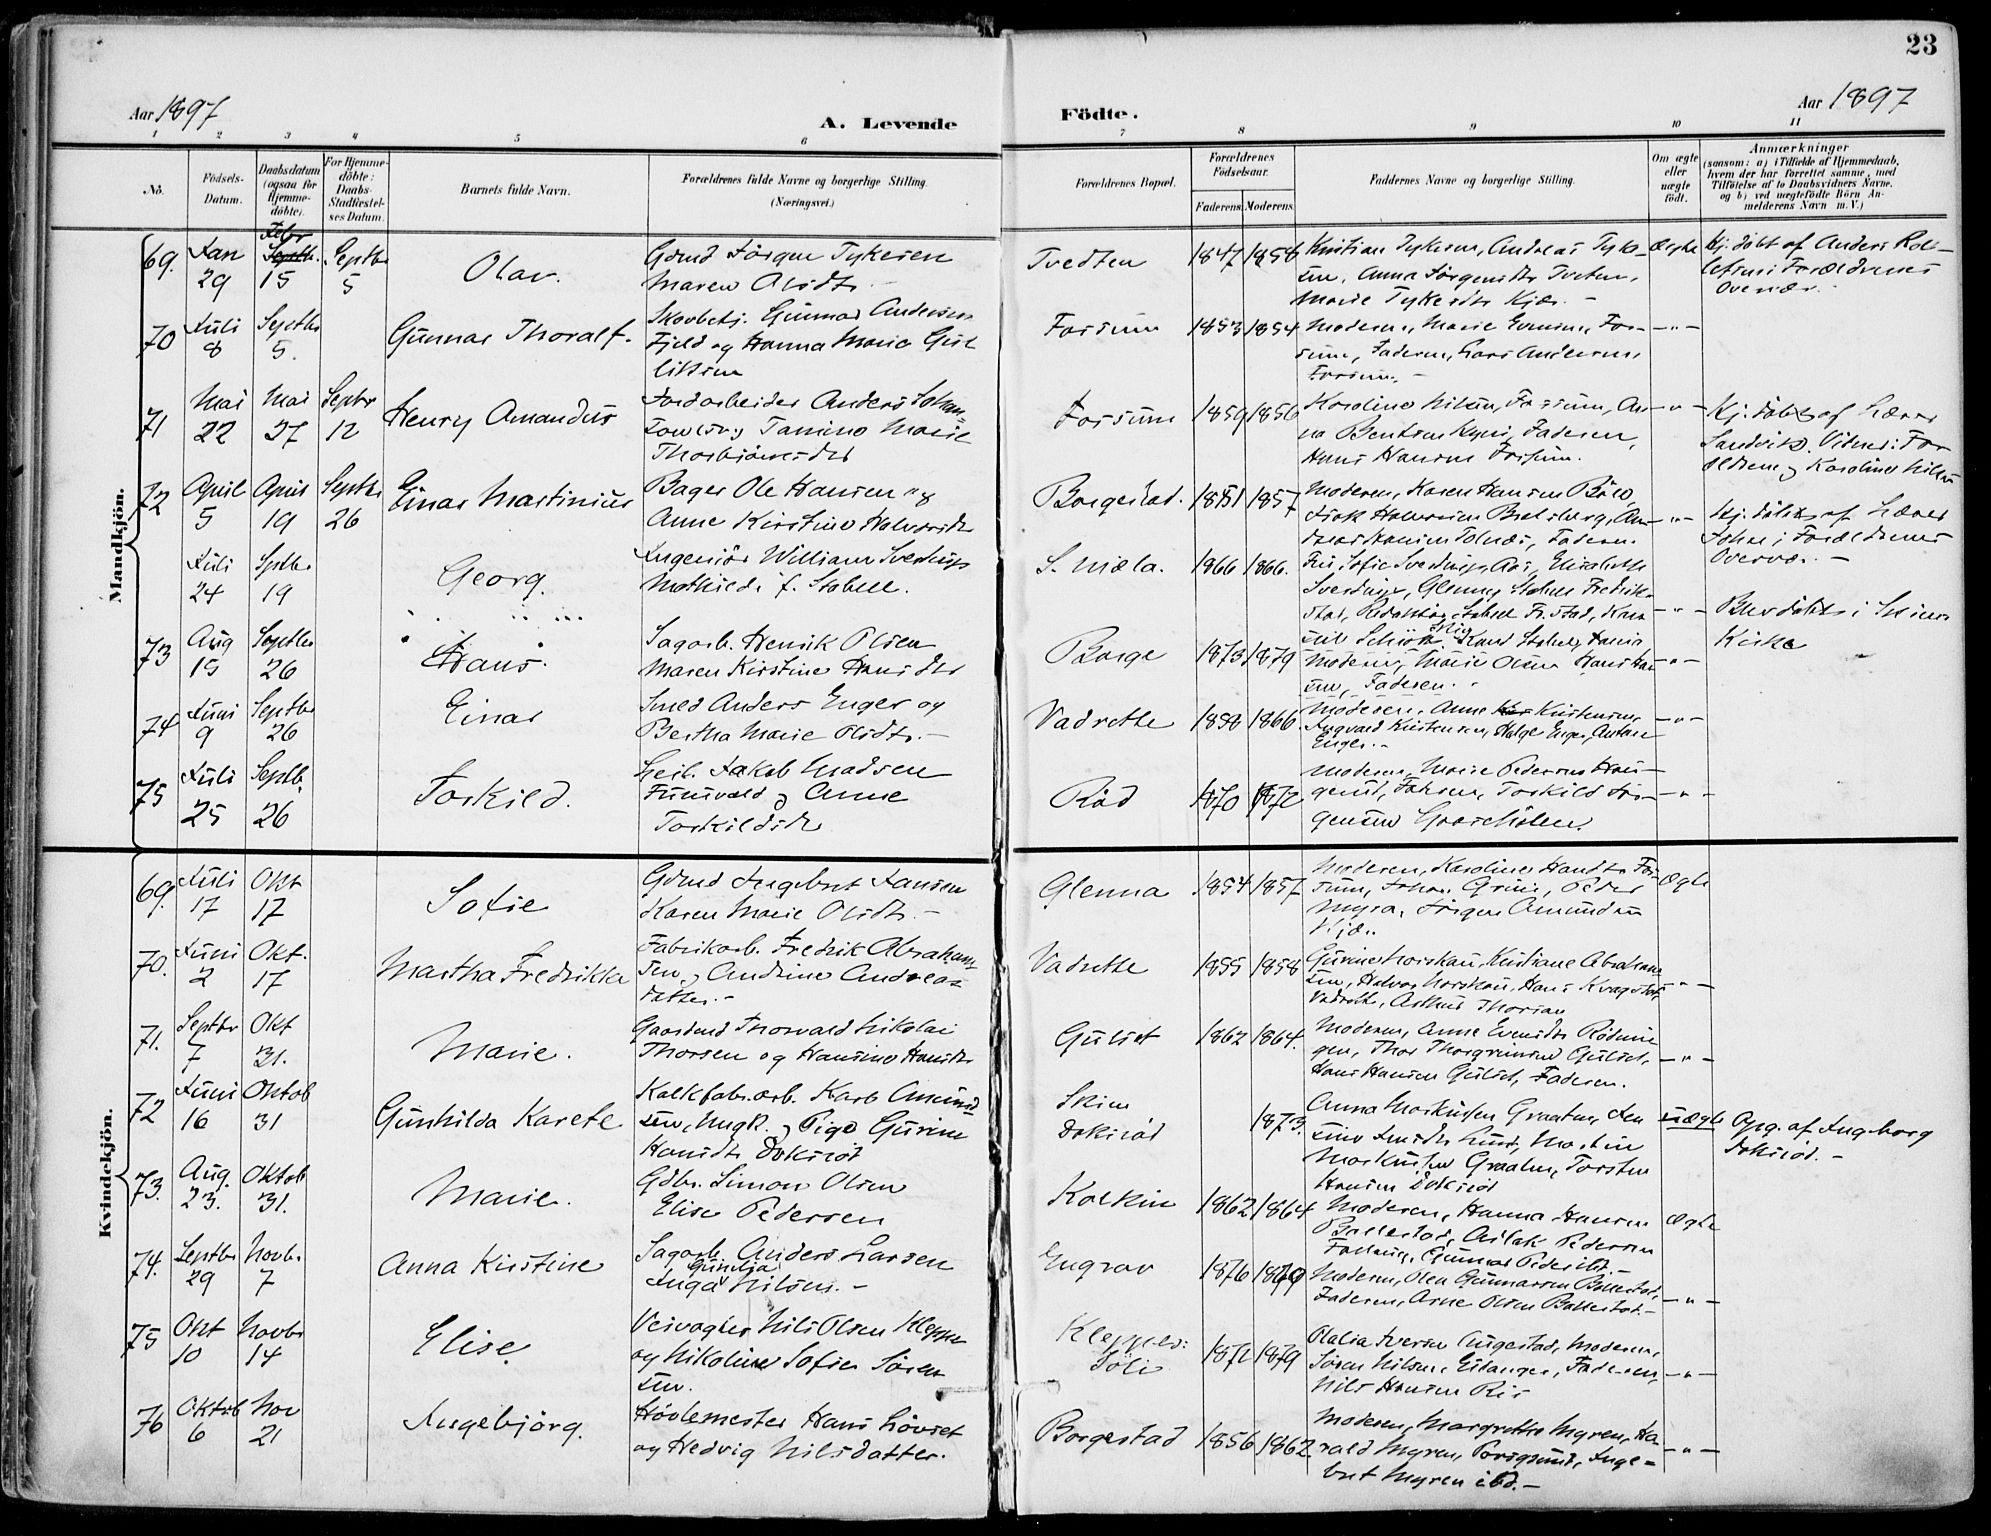 23
Aar 1897
A. Levende
Födte.
Aar 1897
1 2 3 4 5 6 7 8 9 10 11
No.
Födsels-
Datum.
Daabsdatum
(ogsaa for
Hjemme-
döbte).
For Hjemme-
döbte:
Daabs-
Stadfæstel-
ses Datum.
Barnets fulde Navn.
Forældrenes fulde Navne og borgerlige Stilling.
(Næringsvei.)
Forældrenes Bopæl.
Forældrenes
Födselsaar.
Faderens. Moderens.
Faddernes Navne og borgerlige Stilling.
Om ægte
eller
uægte
födt.
Anmærkninger
(saasom: a) i Tilfælde af Hjemmedaab,
hvem der har forrettet samme, med
Tilföielse af to Daabsvidners Navne,
og b) ved uægtefödte Börn An-
melderens Navn m. V.)
Mandkjön.
69. Jan 29 Febr Septb. 15 Septbr 5
Olav.
Gdmd Jörgen Tykesen
Maren Olsdtr. -
Tvedten
1847 1856
Kristian Tykesen, Andreas Tyke-
sen, Anna Jörgensdtr Tveten,
Marie Tykesdtr Kjær. -
Ægte
Hj. döbt af Anders Rol-
lefsen i Forældrenes
Overvær. -
70 Juli 8 Septbr 5.
Gunnar Thoralf.
Skovbetj. Gunnar Andersen
Fjeld og Hanna Marie Gul
liksen
Fossum
1853 1854
Moderen, Marie Evensen, Fos-
sum, Faderen, Lars Andersen,
Fossum. -
- " -
71 Mai 22 Mai 27 Septbr 12
Henry Amandus
Jordarbeider Anders Johan-
Tomine Marie
Thorbjörnsdtr
Fossum
1859 1856
Karoline Nilsen, Fossum, An-
na Bentsen Faderen,
Hans Hansen Fossum.
- " -
Hj. döbt af Lærer
Sandvik. Vidner: For
ældrene og Karoline Nilsen
72 April 5 April 19 Septbr 26
Einar Martinius
Bager Ole Hansen og
Anne Kirstine Halvorsdtr
Borgestad.
1851 1857
Moderen, Karen Hansen
Isak Halvorsen Bratsberg, An-
dreas Hansen Tolnæs, Faderen.
- " -
Hj. döbt af Lærer
i Forældrenes
Overvær. -
Juli 24 Septbr 19
Georg.
Ingeniör William Sverdrup
Mathilde f. Stabell.
S. Mæla.
1866 1866.
Fru Sofie Sverdrup Aas, Elisabeth
Sverdrup, Stabell Fredrik-
stad, Redaktör Stabell Fr.stad,
- " -
Blev döbt i Skiens
Kirke
73 Aug 15 Septbr 26
Hans.
Sagarb. Henrik Olsen
Maren Kirstine Hansdtr
Borge
1873 1879
Moderen, Marie Olsen Hans Han
sen, Faderen.
- " -
74 Juni 9 Septbr 26
Einar
Smed Anders Enger og
Bertha Marie Olsdtr. -
Vadrette
1858 1866.
Moderen, Anne Kristensen,
Ingvald Kristensen, Helge Enger, Anton
Enger. -
- " -
75 Juli 25 Septb. 26
Torkild.
Leil. Jakob Madsen
og Anne
Torkildsdtr
Röd
1870 1872
Moderen, Marie Pedersen Hau-
Torkild Jör-
gensen
- " -
Kvindekjön.
69. Juli 17 Okt 17
Sofie
Gdmd Ingebret Jansen
Karen Marie Olsdtr. -
Glenna
1854 1857
Moderen, Karoline Hansdtr Fos-
sum, Johan Grini, Peder
Myra, Jörgen Amundsen
Ægte
70. Juni 2 Okt. 17
Martha Fredrikka
Fabrikarb. Fredrik Abraham-
sen og Andrine Andreas
datter. -
Vadrette
1855 1858
Gurine Norskau, Kristiane Abraham-
sen, Halvor Norskau, Hans
Vadrette,
- " -
71. Septbr 7 Okt 31.
Marie.
Gaardmd Thorvald Nikolai
Thorsen og Hansine Hansdtr
Gulset
1862 1864.
Moderen, Anne Evensdtr Rödnin-
gen, Thor Thorgrimsen Gulset,
Hans Hansen Gulset, Faderen.
- " -
72 Juni 16 Oktob 31
Gunhilda Karete
Kalkfabr.arb. Karl Amund
sen, Ungk. og Pige Gurine
Hansdtr Doksröd
Skien
Doksröd
1873.
Anna Markussen Graaten, Jen
sine Lund, Martin
Markussen Graaten, Torsten
Hansen Doksröd
uægte
Opg. af Ingeborg
Doksröd. -
73. Aug. 23. Oktob 31.
Marie.
Gdbr. Simon Olsen
Elise Pedersen
Kolkin
1862 1864
Moderen, Hanna Hansen
Ballestad, Aslak Pedersen
Gunnar Pedersen ibd. -
ægte
74. Septbr 29 Novbr 7
Anna Kirstine
Sagarb. Anders Larsen
Gunilja
Inga Nilsen. -
Engrav
1876 1879
Moderen, Olea Gunnarsen Ballestad,
Faderen, Arne Olsen Ballestad. -
- " -
75 Okt 10 Novbr 14
Elise
Veivogter Nils Olsen Kleppe
og Nikoline Sofie Sören
sen.
1872 1879
Olalia Iversen Augestad, Moderen,
Sören Nilsen, Eidanger, Faderen,
Nils Hansen Ris
- " -
76 Oktob 6 Nov 21
Ingebjörg.
Hövlemester Hans Lövset
og Hedvig Nilsdatter.
Borgestad
1856 1862.
Moderen, Margrethe Myren, Ha-
rald Myren, Porsgrund, Inge-
bret Myren ibd. -
- " -